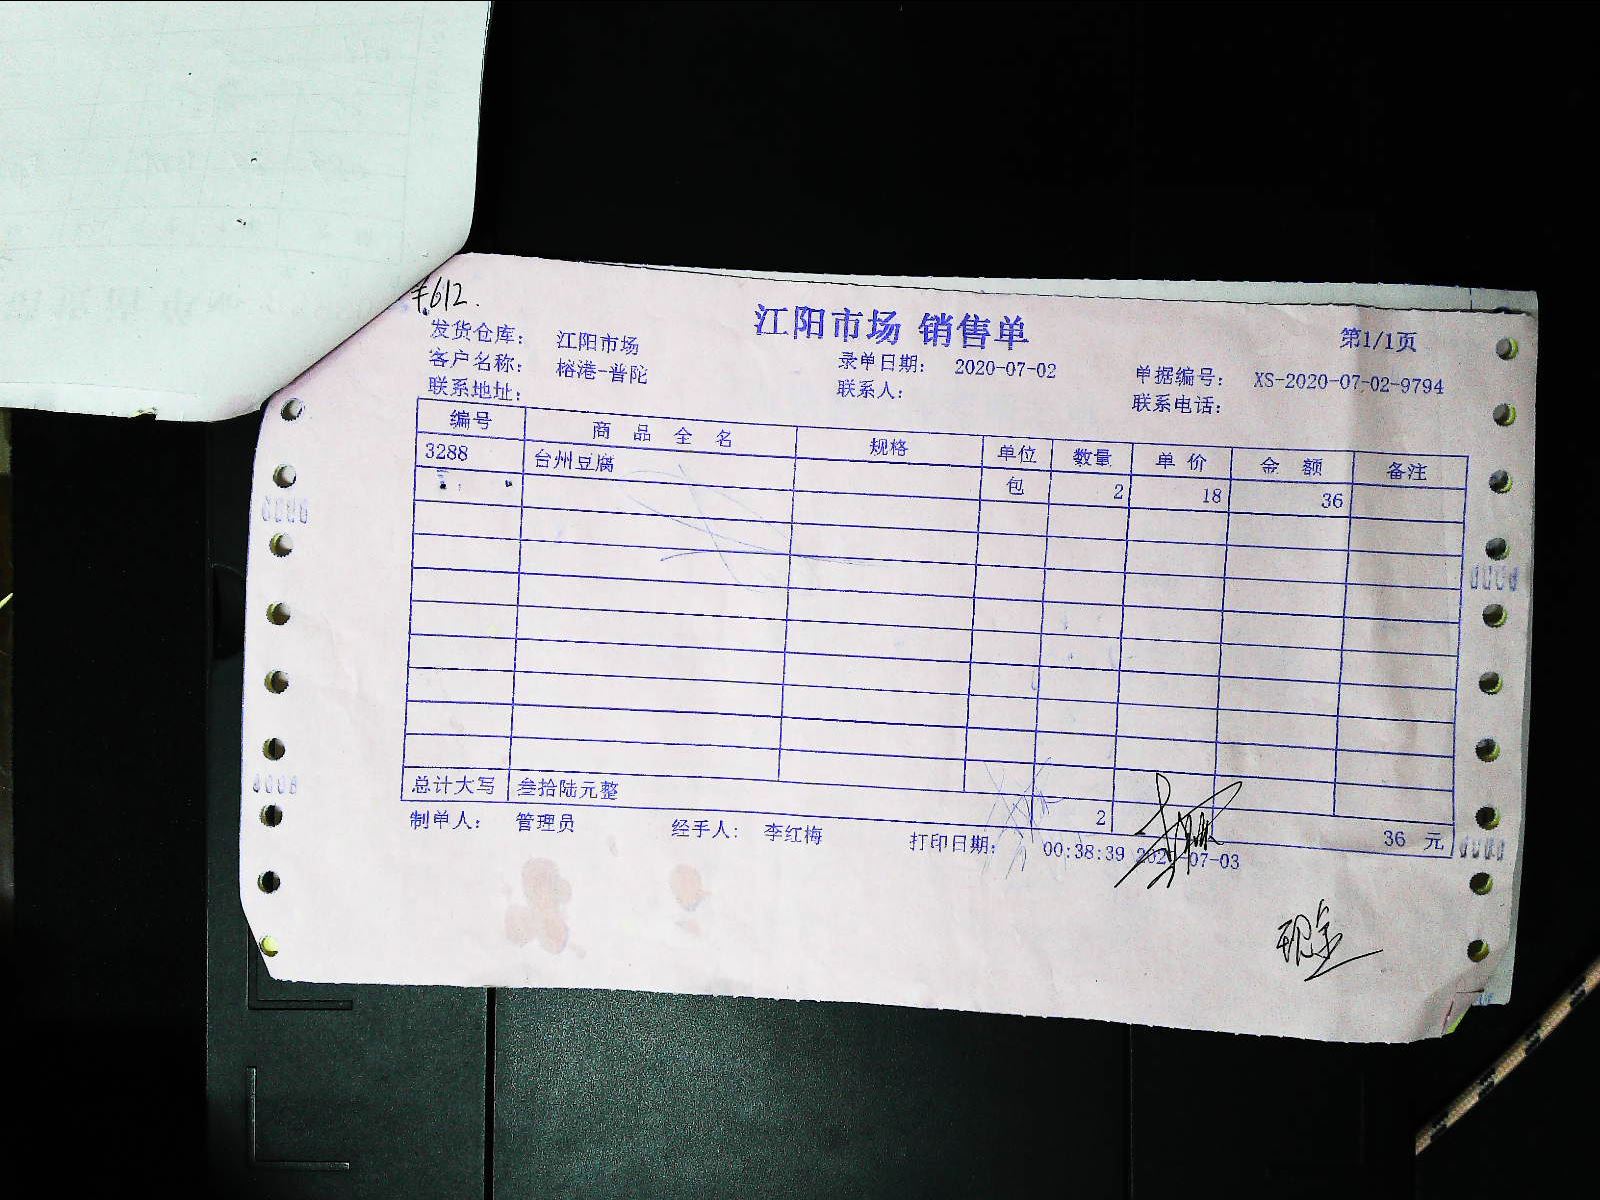 ¥612.
江阳市场 销售单
第1/1页
发货仓库： 江阳市场
客户名称： 榕港-普陀 录单日期： 2020-07-02 单据编号： XS-2020-07-02-9794
联系地址： 联系人： 联系电话：
编号 商品全名 规格 单位 数量 单价 金额 备注
3288 台州豆腐 包 2 18 36
总计大写 叁拾陆元整 2 36 元
制单人： 管理员 经手人： 李红梅 打印日期： 00:38:39 2020-07-03
现金